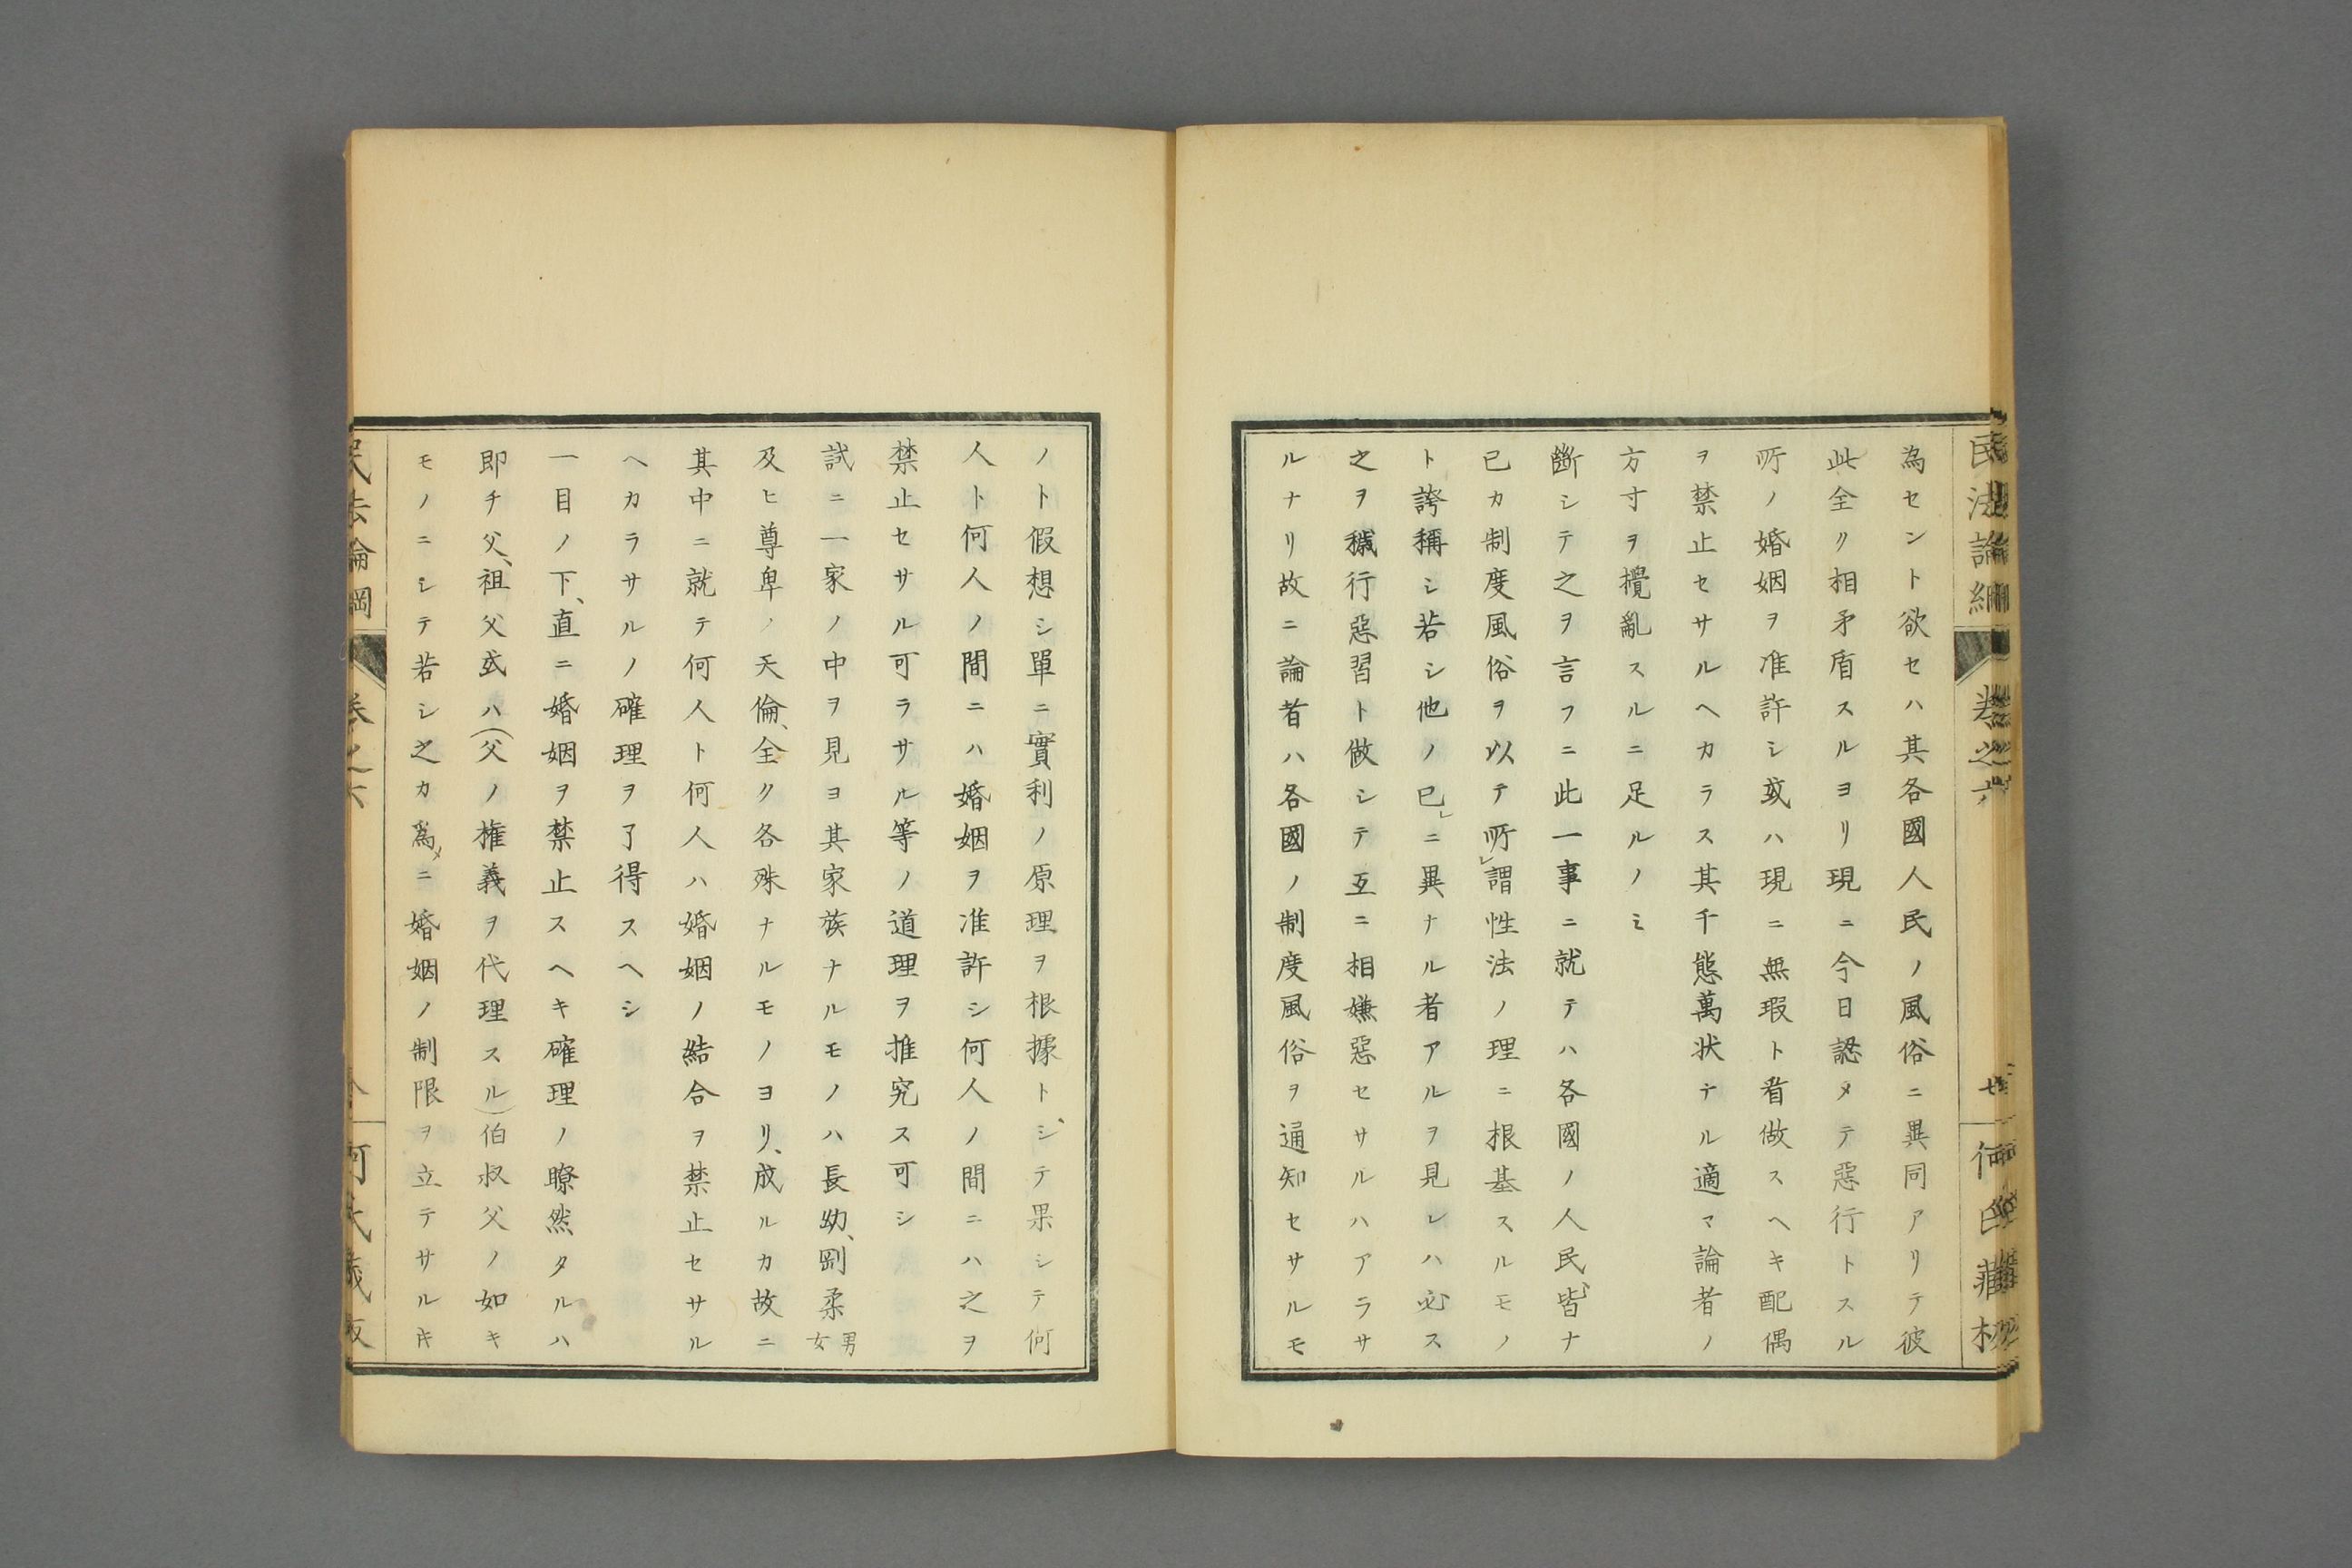 民法論綱　卷之六　何氏藏板
為セント欲セハ其各國人民ノ風俗ニ異同アリテ彼
此全ク相矛盾スルヨリ現ニ今日認メテ惡行トスル
所ノ婚姻ヲ准許シ或ハ現ニ無瑕ト看做スヘキ配偶
ヲ禁止セサルヘカラス其千態萬狀テル適マ論者ノ
方寸ヲ攪亂スルニ足ルノミ
斷シテ之ヲ言フニ此一事ニ就テハ各國ノ人民皆ナ
已カ制度風俗ヲ以テ所謂性法ノ理ニ根基スルモノ
ト誇稱シ若シ他ノ已ニ異ナル者アルヲ見レハ必ス
之ヲ穢行惡習ト做シテ互ニ相嫌惡セサルハアラサ
ルナリ故ニ論者ハ各國ノ制度風俗ヲ通知セサルモ
ノト假想シ單ニ實利ノ原理ヲ根據ト、シテ果シテ何
人ト何人ノ間ニハ婚姻ヲ准許シ何人ノ間ニハ之ヲ
禁止セサル可ラサル等ノ道理ヲ推究ス可シ
試ニ一家ノ中ヲ見ヨ其家族ナルモノハ長幼、剛柔男女
及ヒ尊卑ノ天倫、全ク各殊ナルモノヨリ、成ルカ故ニ
其中ニ就テ何人ト何人ハ婚姻ノ結合ヲ禁止セサル
ヘカラサルノ確理ヲ了得スヘシ
一目ノ下、直ニ婚姻ヲ禁止スヘキ確理ノ瞭然タルハ
即チ父、祖父或ハ(父ノ権義ヲ代理スル)伯叔父ノ如キ
モノニシテ若シ之カ爲メニ婚姻ノ制限ヲ立テサル𪜈
民法論綱　卷之六　何氏藏板